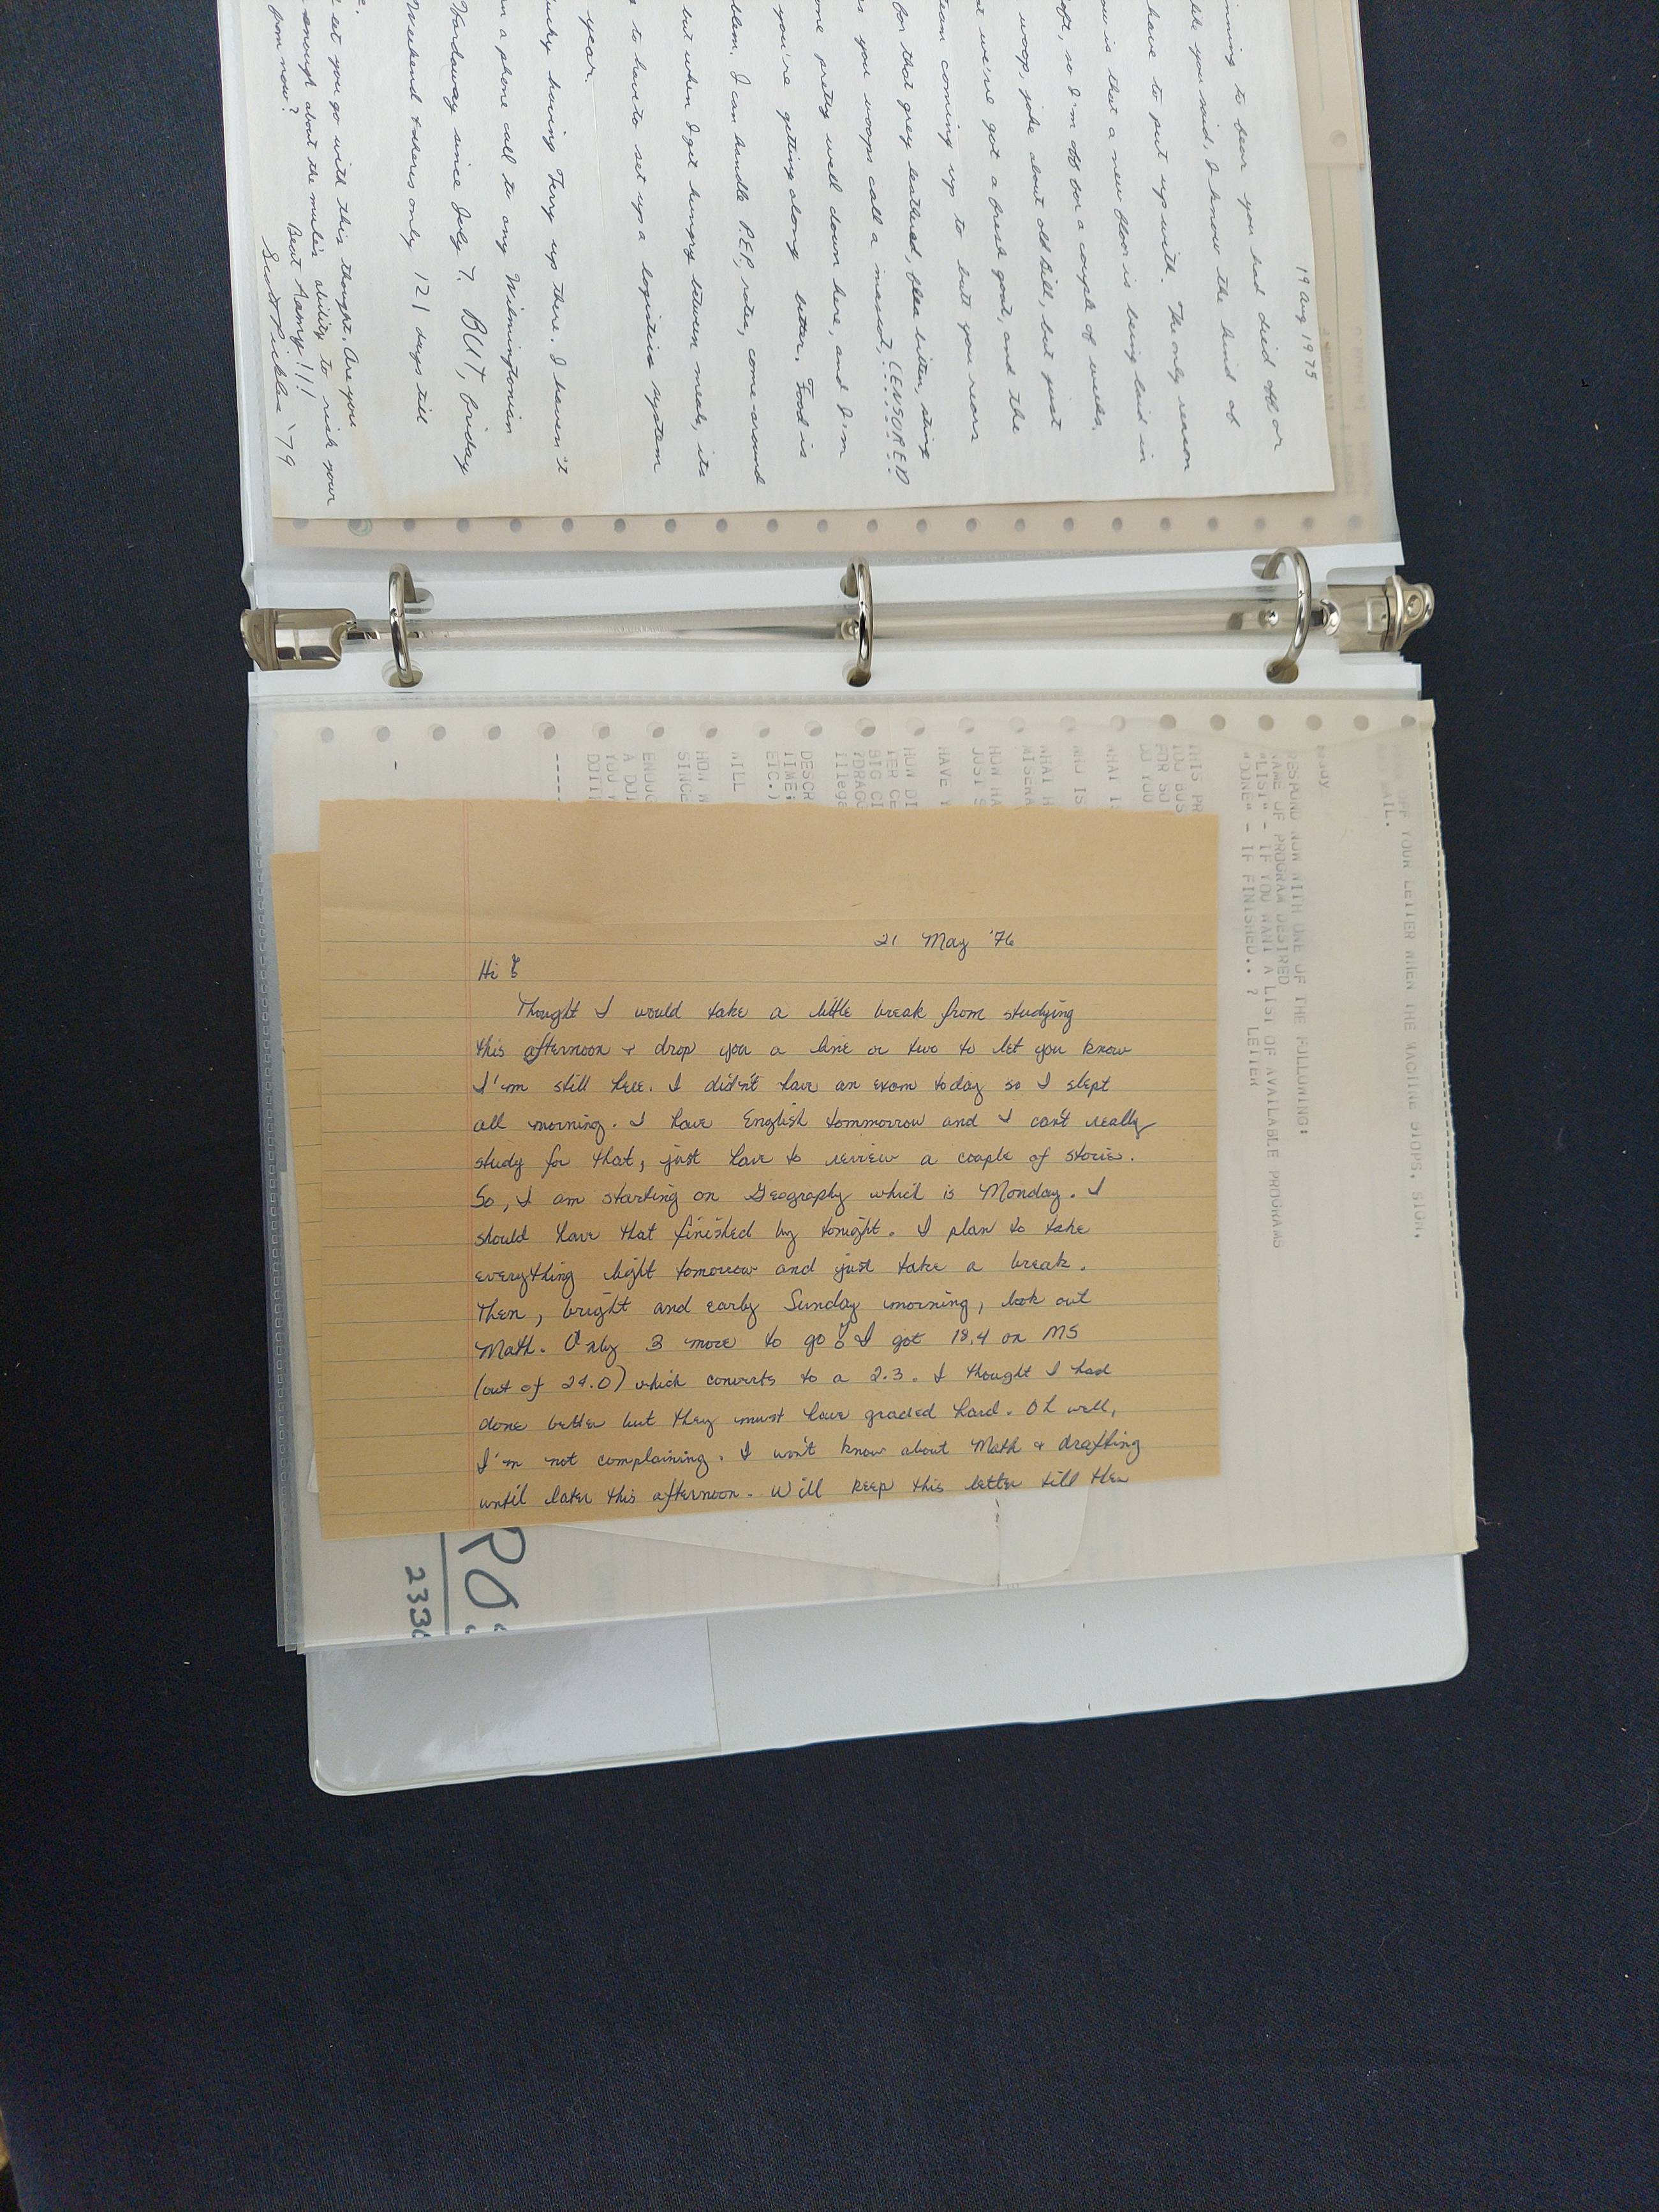 19 Aug 1975
nning to hear you had did off or
like you said, I know the kind of
have to put up with. The only reason
ou is that a new floor is being laid in
oft, so I'm off for a couple of weeks.
woop, joke about old Bill, but just
at we've got a fresh goat, and the
team coming up to but you near
for that grey leathered, flea bitten, sting
s you woops call a mascot, CENSORED
one pretty well down here, and I'm
you're getting along better. Food is
blem. I can handle P.E.P. rates, come around
but when I get hungry between meals, its
to have to set up a logistics system
year.
ucky having Terry up there. I haven't
n a phone call to any Wilmingtonian
Vandaway since July 7. BUT, friday
Weekend orders only 121 days till
et you go with this thought. Are you
enough about the mule's ability to risk your
from now?
Beat Army!!!
Scott Pickles '79
OFF YOUR LETTER WHEN THE MACHINE STOPS, SIGN,
MAIL.
READY
RESPOND NOW WITH ONE OF THE FOLLOWING:
NAME OF PROGRAM DESIRED
"LIST" - IF YOU WANT A LIST OF AVAILABLE PROGRAMS
"DONE" - IF FINISHED.. ? LETTER
21 May '76
Hi!
Thought I would take a little break from studying
this afternoon + drop you a line or two to let you know
I'm still here. I didn't have an exam today so I slept
all morning. I have English tommorrow and I can't really
study for that, just have to review a couple of stories.
So, I am starting on Geography which is Monday. I
should have that finished by tonight. I plan to take
everything light tomorrow and just take a break.
Then, bright and early Sunday morning, look out
Math. Only 3 more to go! I got 18.4 on MS
(out of 24.0) which converts to a 2.3. I thought I had
done better but they must have graded hard. Oh well,
I'm not complaining. I won't know about Math + drafting
until later this afternoon. Will keep this letter till then